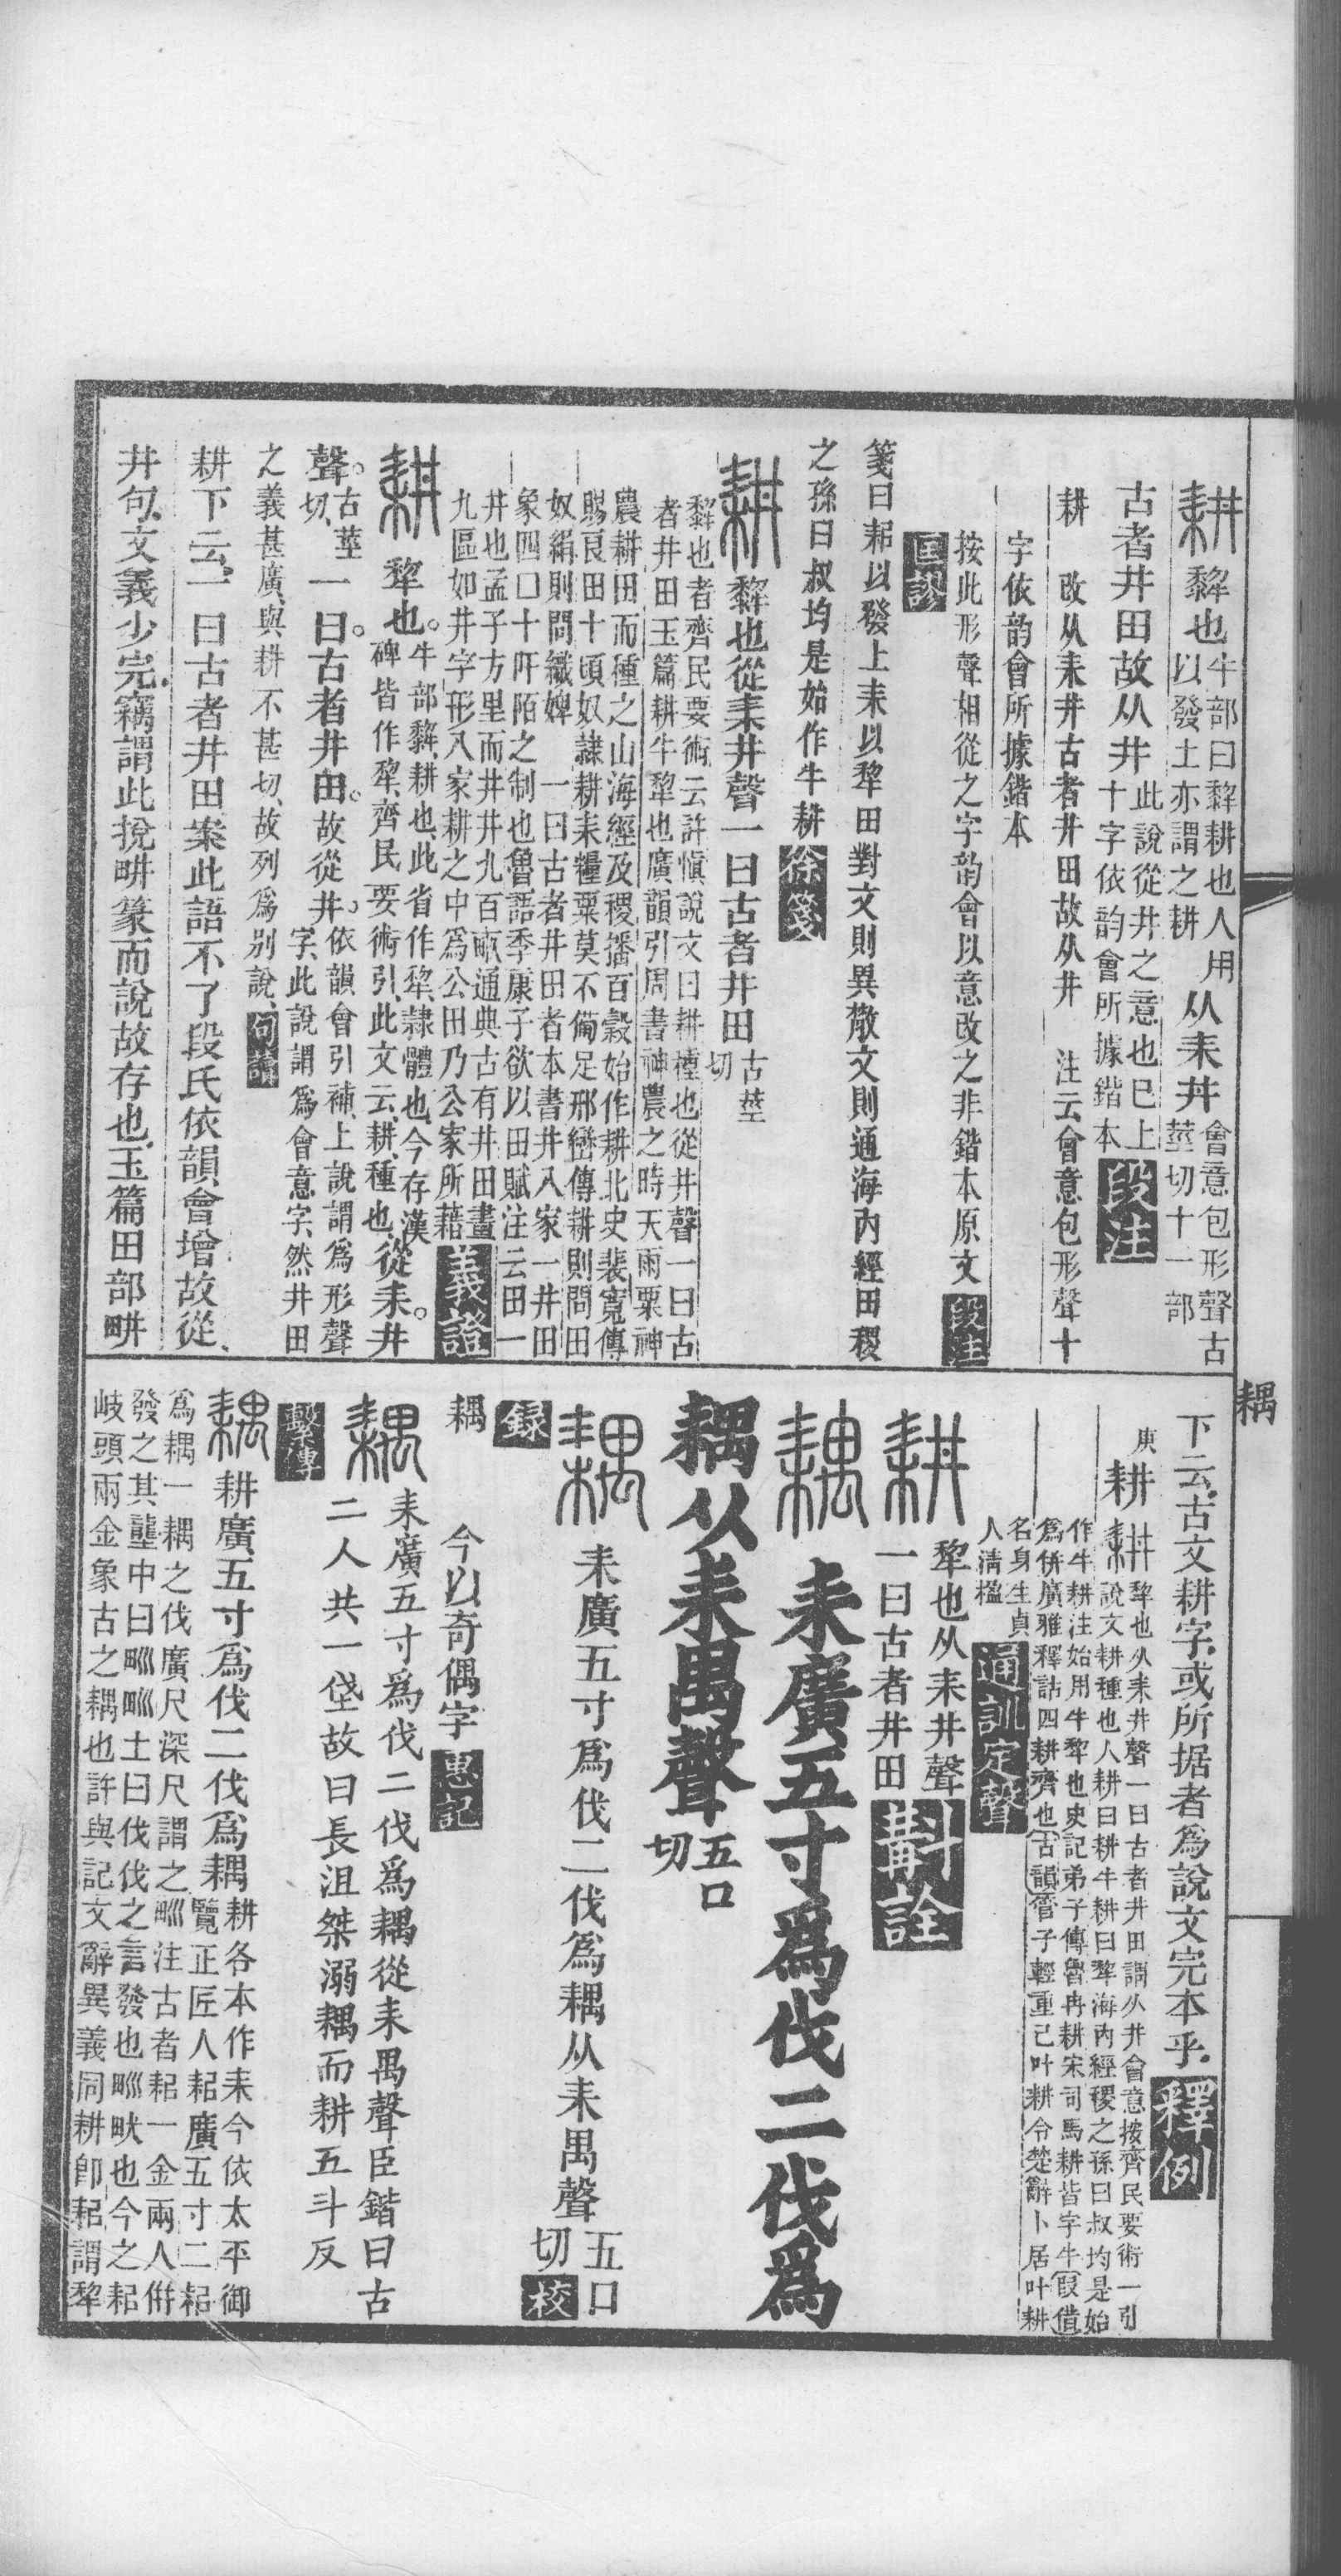 耕 犂也牛部曰犂耕也人用
以發土亦謂之耕从耒井會意包形聲古
莖切十一部
古者井田故从井此說從井之意也巳上
十字依韵會所據鍇本段注
耕 改从耒井古者井田故从井 注云會意包形聲十
字依韵會所據鍇本
按此形聲相從之字韵會以意改之非鍇本原文段注
匡謬
箋曰耜以發上耒以犂田對文則異散文則通海內經田稷
之孫曰叔均是始作牛耕徐箋
耕 犂也從耒井聲一曰古者井田古莖
切
犂也者齊民要術云許愼說文曰耕種也從井聲一曰古
者井田玉篇耕牛犂也廣韻引周書神農之時天雨粟神
農耕田而種之山海經及稷播百穀始作耕北史裴寬傳
賜良田十頃奴隷耕耒糧粟莫不備足邢巒傳耕則問田
奴絹則問織婢 一曰古者井田者本書井八家一井田
象四囗十阡陌之制也魯語季康子欲以田賦注云田一
井也孟子方里而井井九百畝通典古有井田畫
九區如井字形八家耕之中爲公田乃公家所藉義證
耕 犂也。牛部犂、耕也、此省作犂、隷體也、今存漢
碑皆作犂、齊民要術引、此文云、耕、種也從耒。井
聲。古莖
切、一曰。古者井田。故從井。依韻會引補、上說謂爲形聲
字、此說謂爲會意字、然井田
之義甚廣、與耕不甚切、故列爲別說、句讀
耕下云、一曰古者井田案此語不了段氏依韻會增故從
井句、文義少完、竊謂此挩畊篆而說故存也、玉篇田部畊
下云、古文耕字、或所据者爲說文完本乎、釋例
庚耕 耕 犂也从耒井聲一曰古者井田謂从井會意按齊民要術一引
說文耕種也人耕曰耕牛耕曰犂海內經稷之孫曰叔均是始
作牛耕注始用牛犂也史記弟子傳冉耕宋司馬耕皆字牛叚借
爲併廣雅釋詁四耕齊也古韻管子輕重己叶耕令楚辭卜居叶耕
名身生貞
人淸楹通訓定聲
耕 犂也从耒井聲
一曰古者井田斠詮
耦 耒廣五寸爲伐二伐爲
耦从耒禺聲五口
切
耦 耒廣五寸爲伐二伐爲耦从耒禺聲五口
切校
錄
耦 今以奇偶字惠記
耦 耒廣五寸爲伐二伐爲耦從耒禺聲臣鍇曰古
二人共一垡故曰長沮桀溺耦而耕五斗反
繫傳
耦 耕廣五寸爲伐二伐爲耦耕各本作耒今依太平御
覽正匠人耜廣五寸二耜
爲耦一耦之伐廣尺深尺謂之𤰕注古者耜一金兩人倂
發之其壟中曰𤰕𤰕土曰伐伐之言發也𤰕畎也今之耜
岐頭兩金象古之耦也許與記文辭異義同耕卽耜謂犂
耦